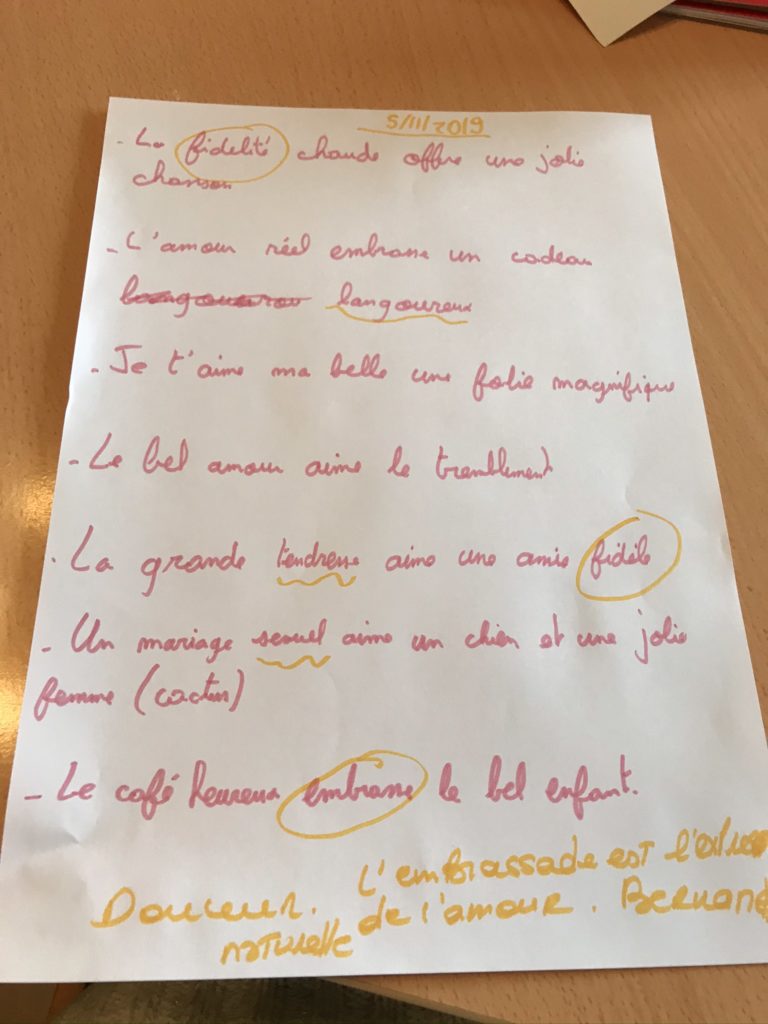 5/11/2019
- La fidélité chaude offre une jolie
chanson
- L'amour réel embrasse un cadeau
langoureux
- Je t'aime ma belle une folie magnifique
- Le bel amour aime le tremblement
- La grande tendresse aime une amie fidèle
- Un mariage sexuel aime un chien et une jolie
femme (cactus)
- Le café heureux embrasse le bel enfant.
L'embrassade est
Douceur. de l'amour. Bernard
naturelle